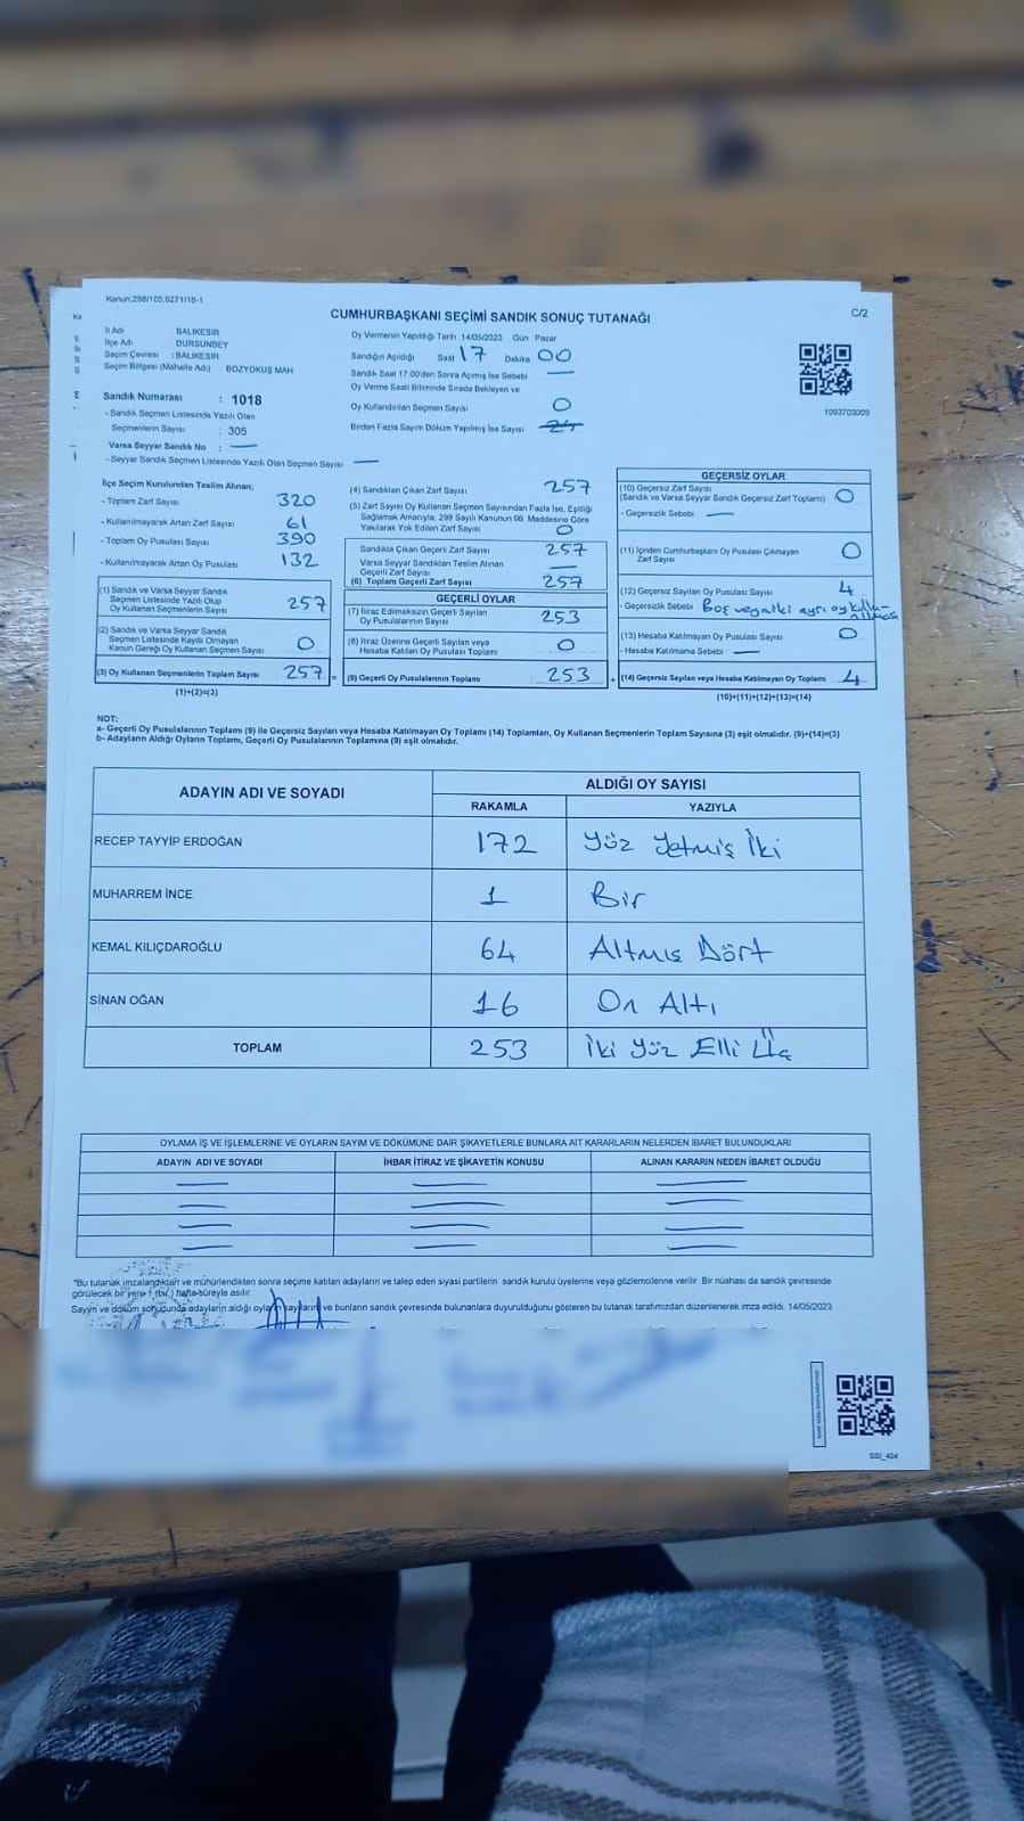 Kanun:298/105,6271/18-1
CUMHURBAŞKANI SEÇİMİ SANDIK SONUÇ TUTANAĞI
C/2
İl Adı BALIKESİR
İlçe Adı DURSUNBEY
Seçim Çevresi : BALIKESİR
Seçim Bölgesi (Mahalle Adı) BOZYOKUŞ MAH
Sandık Numarası : 1018
- Sandık Seçmen Listesinde Yazılı Olan
Seçmenlerin Sayısı : 305
Varsa Seyyar Sandık No : —
- Seyyar Sandık Seçmen Listesinde Yazılı Olan Seçmen Sayısı —
Oy Vermenin Yapıldığı Tarih 14/05/2023 Gün Pazar
Sandığın Açıldığı Saat 17 Dakika 00
Sandık Saat 17.00'den Sonra Açılmış İse Sebebi —
Oy Verme Saati Bitiminde Sırada Bekleyen ve
Oy Kullandırılan Seçmen Sayısı 0
Birden Fazla Sayım Döküm Yapılmış İse Sayısı
1093703009
İlçe Seçim Kurulundan Teslim Alınan;
- Toplam Zarf Sayısı 320
- Kullanılmayarak Artan Zarf Sayısı 61
- Toplam Oy Pusulası Sayısı 390
- Kullanılmayarak Artan Oy Pusulası 132
(1) Sandık ve Varsa Seyyar Sandık
Seçmen Listesinde Yazılı Olup
Oy Kullanan Seçmenlerin Sayısı 257
(2) Sandık ve Varsa Seyyar Sandık
Seçmen Listesinde Kaydı Olmayan
Kanun Gereği Oy Kullanan Seçmen Sayısı 0
(3) Oy Kullanan Seçmenlerin Toplam Sayısı 257 =
(1)+(2)=(3)
(4) Sandıktan Çıkan Zarf Sayısı 257
(5) Zarf Sayısı Oy Kullanan Seçmen Sayısından Fazla İse, Eşitliği
Sağlamak Amacıyla, 298 Sayılı Kanunun 98. Maddesine Göre
Yakılarak Yok Edilen Zarf Sayısı 0
Sandıkta Çıkan Geçerli Zarf Sayısı 257
Varsa Seyyar Sandıktan Teslim Alınan
Geçerli Zarf Sayısı —
(6) Toplam Geçerli Zarf Sayısı 257
GEÇERLİ OYLAR
(7) İtiraz Edilmeksizin Geçerli Sayılan
Oy Pusulalarının Sayısı 253
(8) İtiraz Üzerine Geçerli Sayılan veya
Hesaba Katılan Oy Pusulası Toplamı 0
(9) Geçerli Oy Pusulalarının Toplamı 253 +
GEÇERSİZ OYLAR
(10) Geçersiz Zarf Sayısı
(Sandık ve Varsa Seyyar Sandık Geçersiz Zarf Toplamı) 0
- Geçersizlik Sebebi —
(11) İçinden Cumhurbaşkanı Oy Pusulası Çıkmayan
Zarf Sayısı 0
(12) Geçersiz Sayılan Oy Pusulası Sayısı 4
- Geçersizlik Sebebi Boş veya iki ayrı oy kulla-
nılması
(13) Hesaba Katılmayan Oy Pusulası Sayısı 0
- Hesaba Katılmama Sebebi —
(14) Geçersiz Sayılan veya Hesaba Katılmayan Oy Toplamı 4
(10)+(11)+(12)+(13)=(14)
NOT:
a- Geçerli Oy Pusulalarının Toplamı (9) ile Geçersiz Sayılan veya Hesaba Katılmayan Oy Toplamı (14) Toplamları, Oy Kullanan Seçmenlerin Toplam Sayısına (3) eşit olmalıdır. (9)+(14)=(3)
b- Adayların Aldığı Oyların Toplamı, Geçerli Oy Pusulalarının Toplamına (9) eşit olmalıdır.
ADAYIN ADI VE SOYADI ALDIĞI OY SAYISI
RAKAMLA YAZIYLA
RECEP TAYYİP ERDOĞAN 172 Yüz Yetmiş İki
MUHARREM İNCE 1 Bir
KEMAL KILIÇDAROĞLU 64 Altmış Dört
SİNAN OĞAN 16 On Altı
TOPLAM 253 İki Yüz Elli Üç
OYLAMA İŞ VE İŞLEMLERİNE VE OYLARIN SAYIM VE DÖKÜMÜNE DAİR ŞİKAYETLERLE BUNLARA AİT KARARLARIN NELERDEN İBARET BULUNDUKLARI
ADAYIN ADI VE SOYADI İHBAR İTİRAZ VE ŞİKAYETİN KONUSU ALINAN KARARIN NEDEN İBARET OLDUĞU
"Bu tutanak imzalandıktan ve mühürlendikten sonra seçime katılan adayların ve talep eden siyasi partilerin sandık kurulu üyelerine veya gözlemcilerine verilir. Bir nüshası da sandık çevresinde
görülecek bir yere 1 (bir) hafta süreyle asılır.
Sayım ve döküm sonucunda adayların aldığı oyların sayılarını ve bunların sandık çevresinde bulunanlara duyurulduğunu gösteren bu tutanak tarafımızdan düzenlenerek imza edildi. 14/05/2023
SSI_404